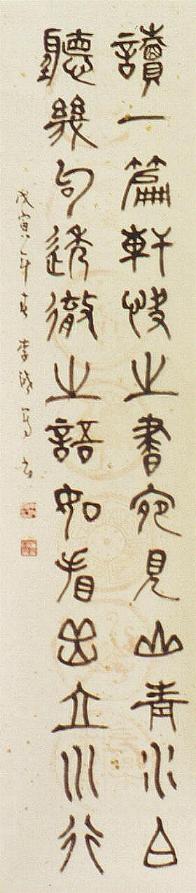 讀一篇軒快之書宛見山青水白
聽幾句透徹之語如看岳立川行
戊寅年